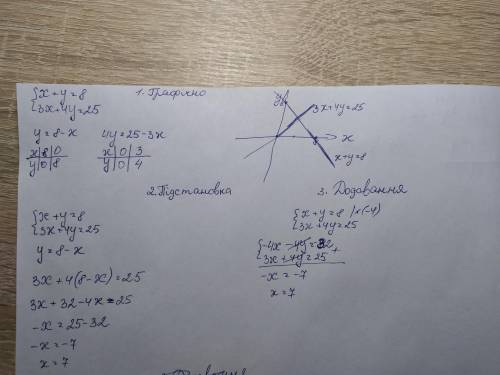 1. Графічно
{x+y=8
{3x+4y=25
y=8-x
x|8|0
y|0|8
4y=25-3x
x|0|3
y|0|4
y
3x+4y=25
x
x+y=8
2. Підстановка
{x+y=8
{3x+4y=25
y=8-x
3x+4(8-x)=25
3x+32-4x=25
-x=25-32
-x=-7
x=7
3. Додавання
{x+y=8 /×(-4)
{3x+4y=25
{-4x-4y=32 +
{3x+4y=25
-x=-7
x=7